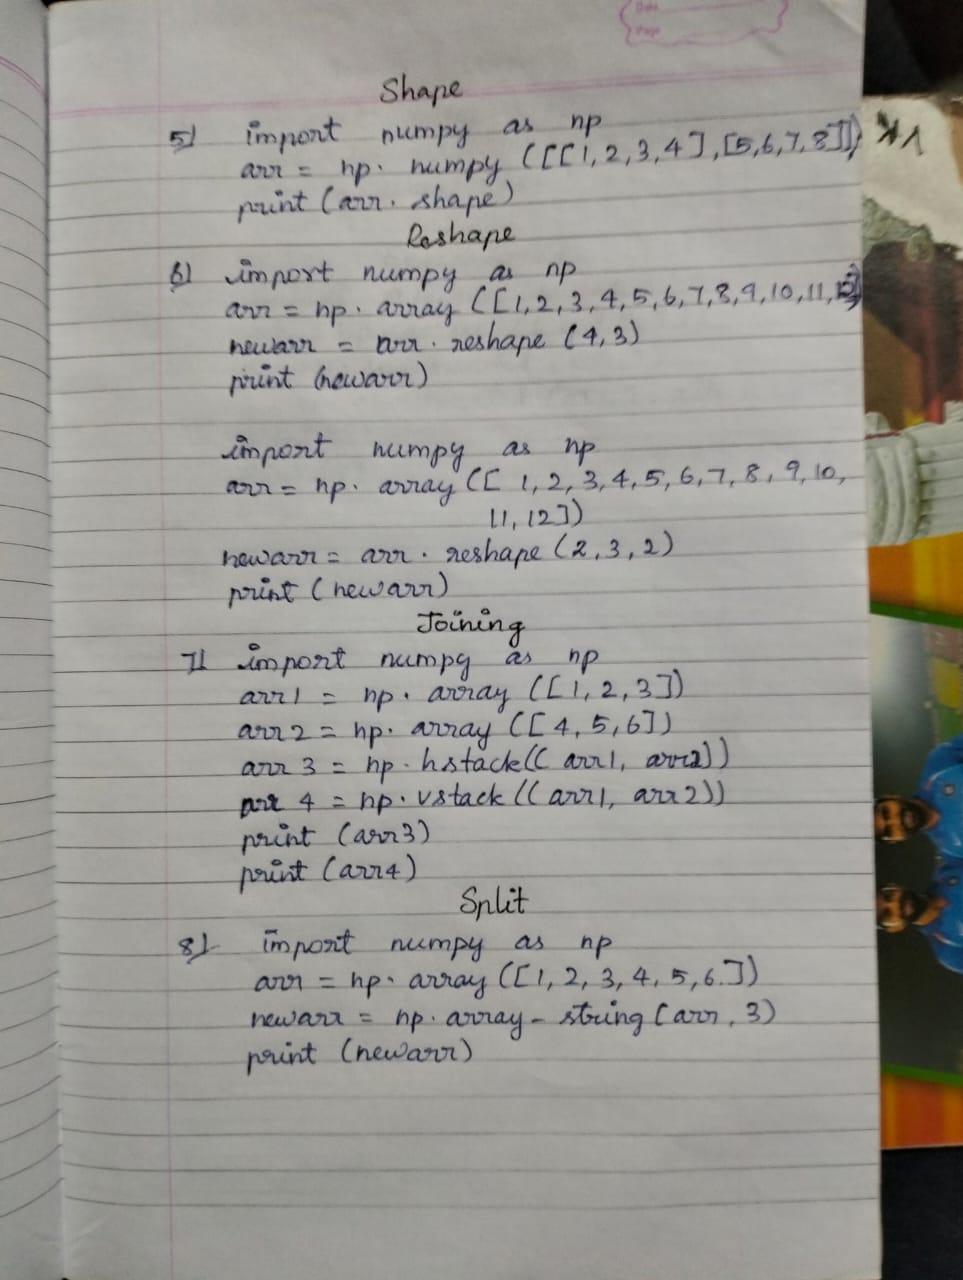 Date
Page
Shape
5) import numpy as np
arr = np. numpy ([[1,2,3,4],[5,6,7,8]])
print (arr. shape)
Reshape
6) import numpy as np
arr = np. array ([1,2,3,4,5,6,7,8,9,10,11,12])
newarr = arr. reshape (4,3)
print (newarr)
import numpy as np
arr = np. array ([ 1,2,3,4,5,6,7,8,9,10,
11,12])
newarr = arr. reshape (2,3,2)
print (newarr)
Joining
7) import numpy as np
arr1 = np. array ([1,2,3])
arr2 = np. array ([4,5,6])
arr 3 = np. hstack(( arr1, arr2))
arr 4 = np. vstack ((arr1, arr2))
print (arr3)
print (arr4)
Split
8) import numpy as np
arr = np. array ([1,2,3,4,5,6.])
newarr = np. array - string (arr, 3)
print (newarr)